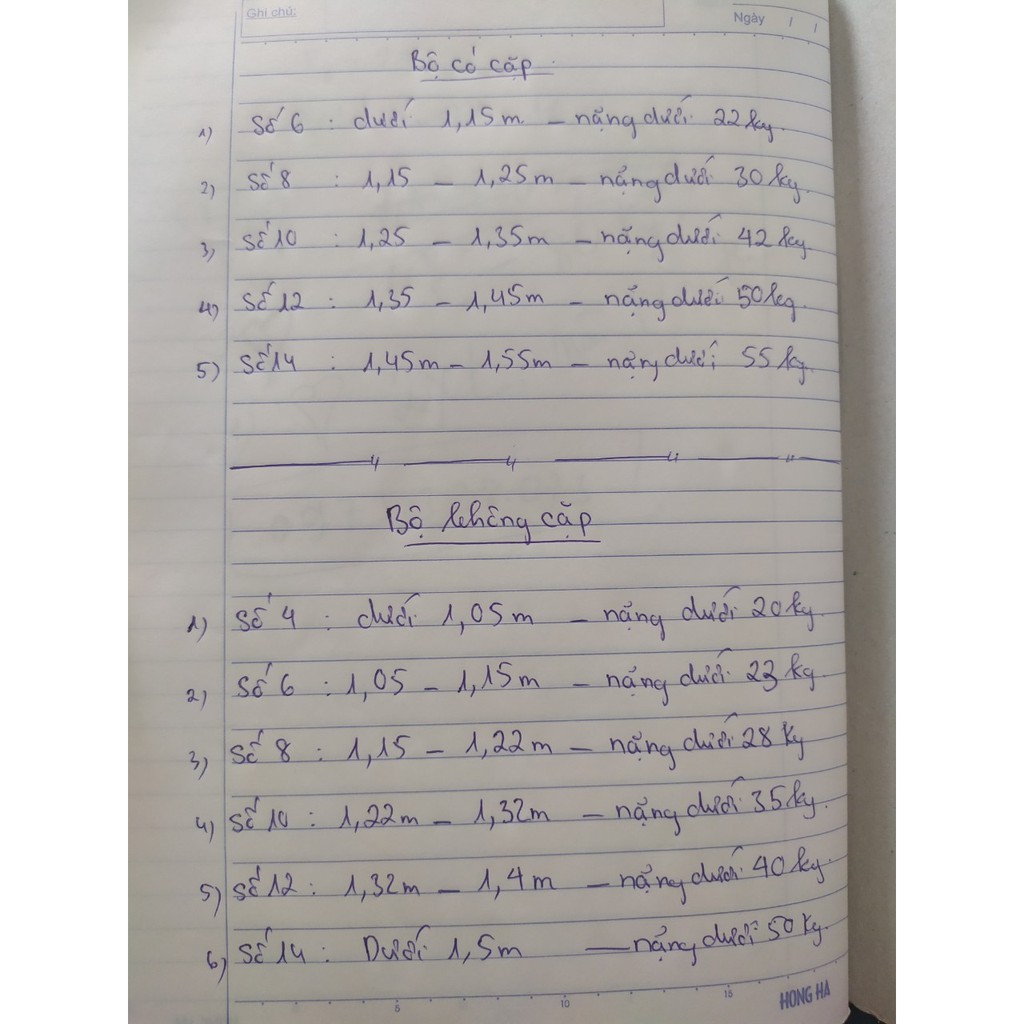 Ghi chú:
Ngày / /
Bộ có cặp
1) Số 6 : dưới 1,15m – nặng dưới 22kg.
2) Số 8 : 1,15 – 1,25m – nặng dưới 30kg.
3) Số 10 : 1,25 – 1,35m – nặng dưới 42kg.
4) Số 12 : 1,35 – 1,45m – nặng dưới 50kg.
5) Số 14 : 1,45m – 1,55m – nặng dưới 55kg.
Bộ không cặp
1) Số 4 : dưới 1,05m – nặng dưới 20kg.
2) Số 6 : 1,05 – 1,15m – nặng dưới 23kg.
3) Số 8 : 1,15 – 1,22m – nặng dưới 28kg
4) Số 10 : 1,22m – 1,32m – nặng dưới 35kg.
5) Số 12 : 1,32m – 1,4m – nặng dưới 40kg.
6) Số 14 : Dưới 1,5m – nặng dưới 50kg.
5 10 15 HONG HA